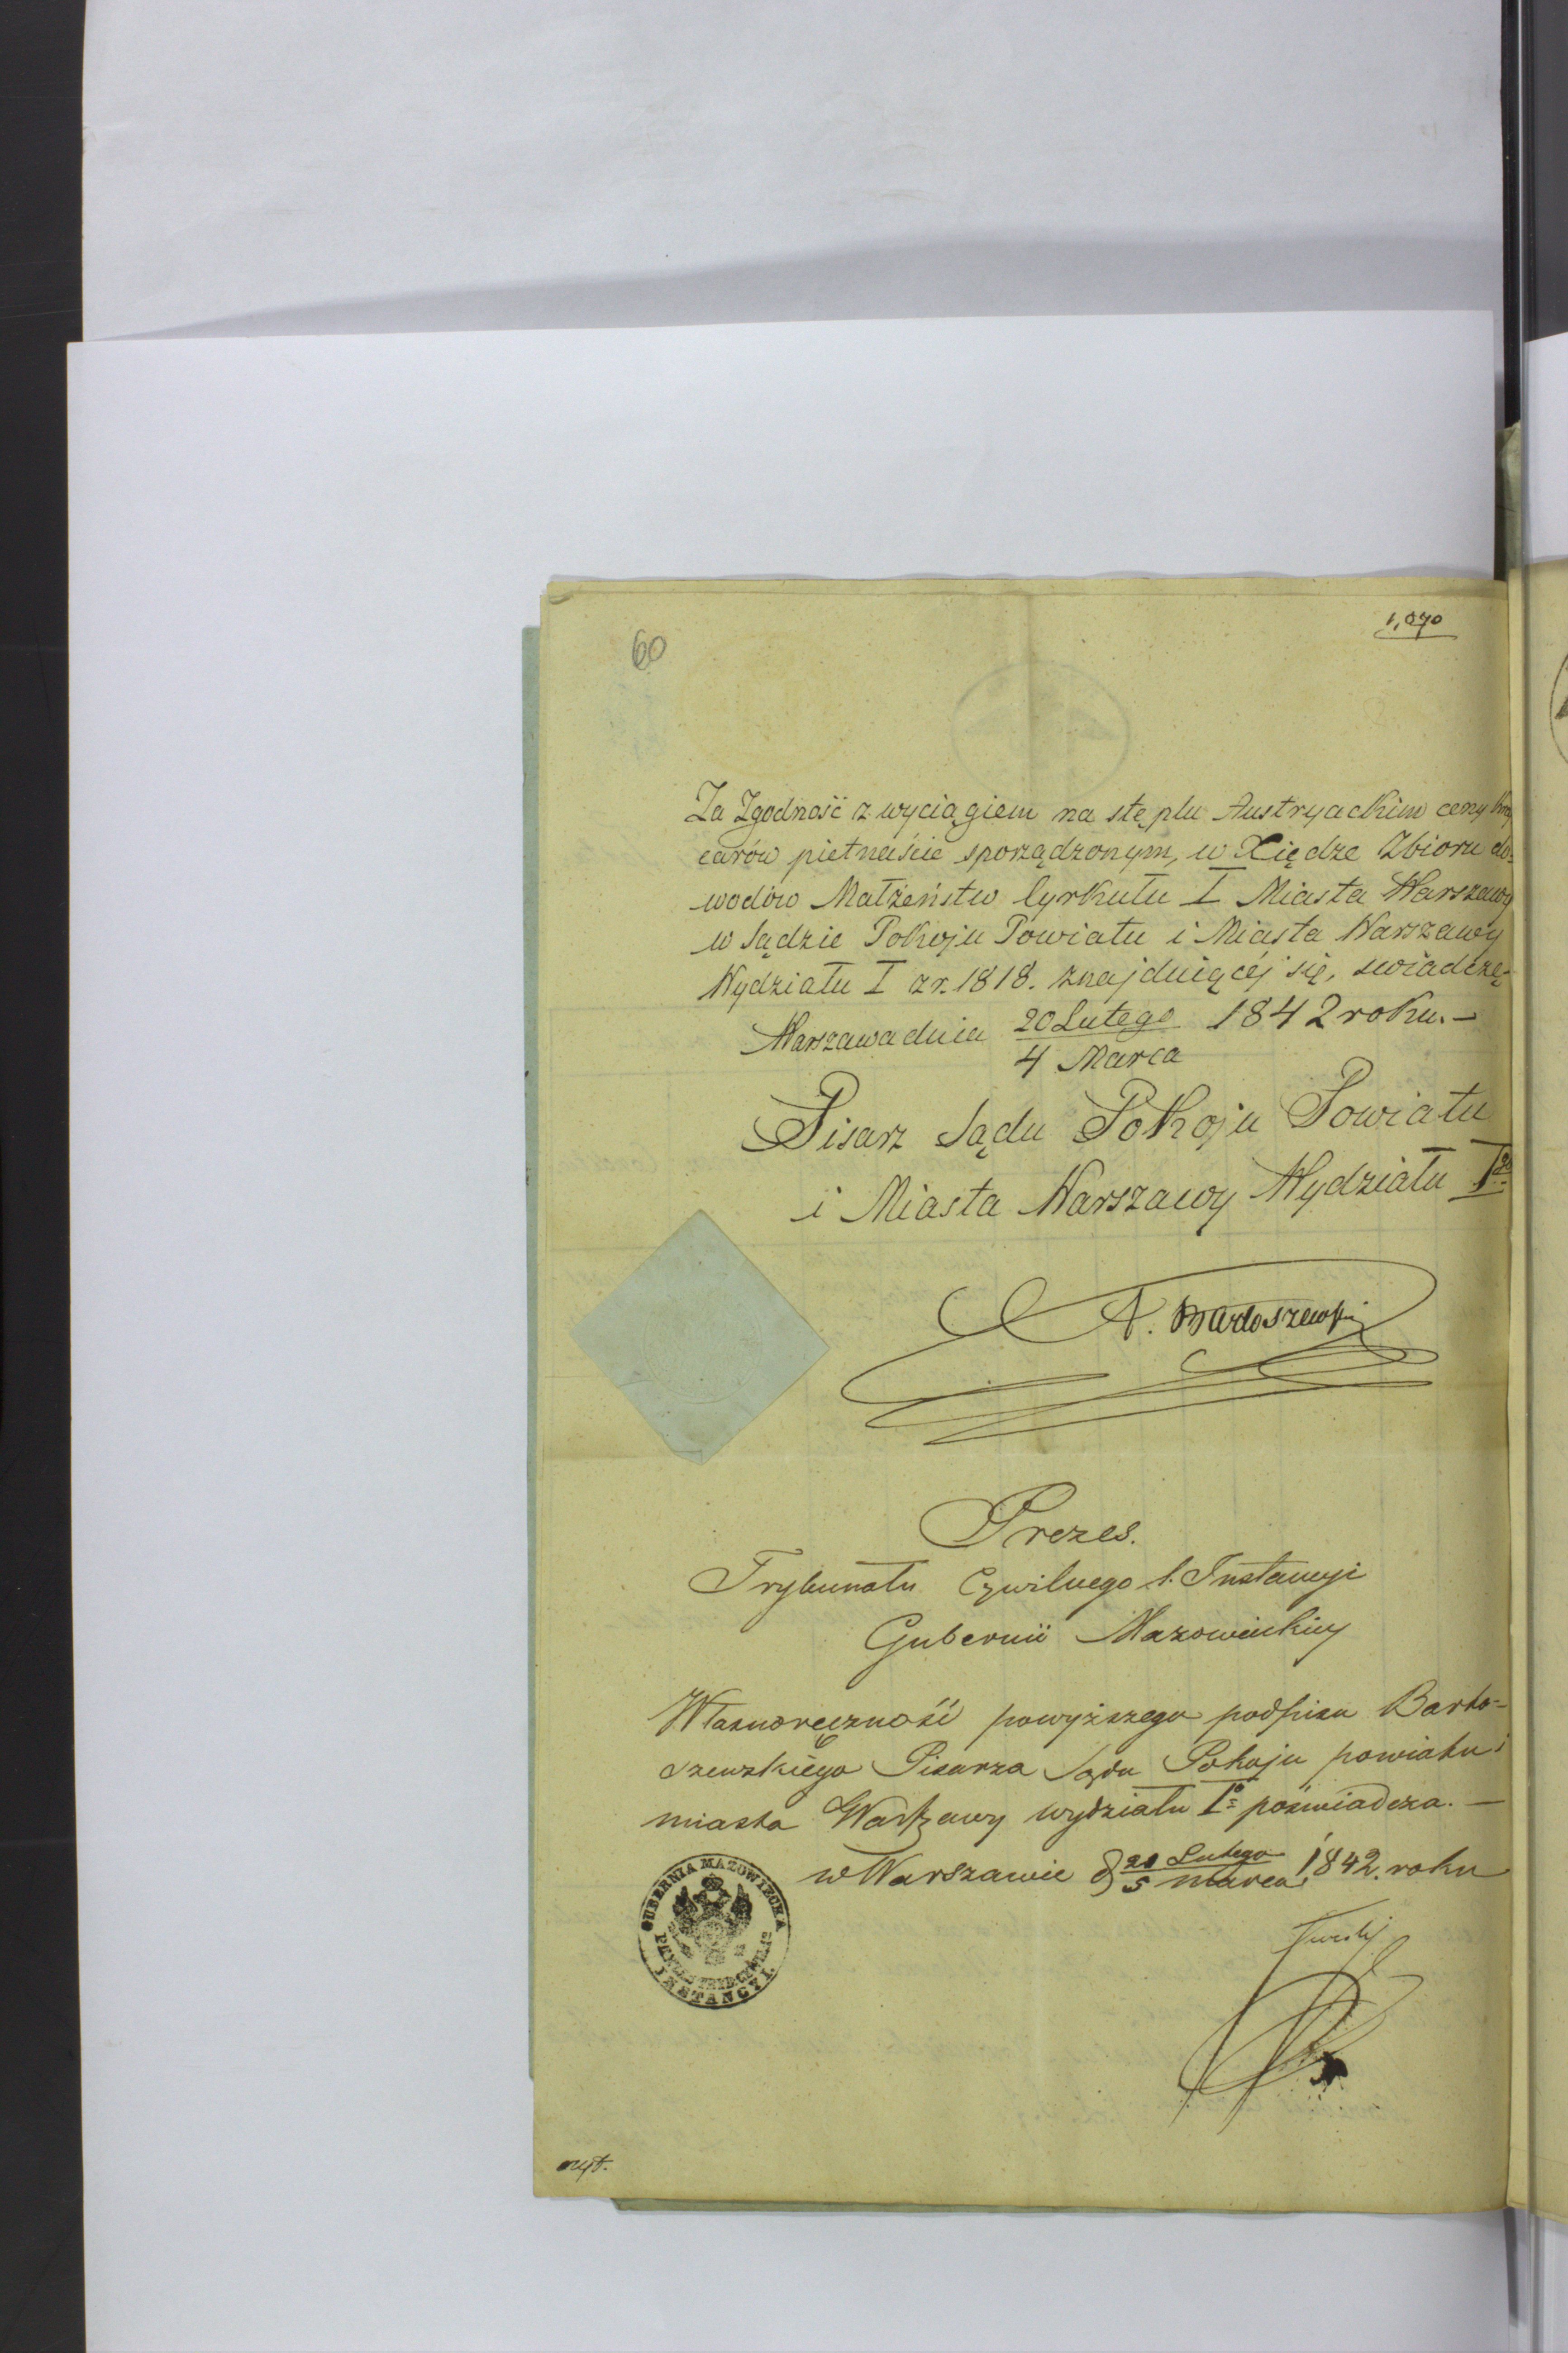 60
1,070
Za Zgodność z wyciągiem na stęplu Austryackim ceny
carów pietnaście sporządzonym, w Xiędze Zbioru do-
wodów Małżeństw Cyrkułu I Miasta Warszawy
w Sądzie Pokoju Powiatu i Miasta Warszawy
Wydziału I z r. 1818. znajduiącéj się, świadczę-
Warszawa dnia 20 Lutego 1842 roku.-
4 Marca
Pisarz Sądu Pokoju Powiatu
i Miasta Warszawy Wydziału Igo
A. Bartoszewski
Prezes.
Trybunału Cywilnego 1. Instancyi
Gubernii Mazowieckiey
Własnoręczność powyższego podpisu Barto-
szewskiego Pisarza Sądu Pokoju powiatu i
miasta Warszawy wydziału Io poświadcza. —
w Warszawie d 21 Lutego 1842. roku
5 marca
GUBERNIA MAZOWIECKA
INSTANCYI.